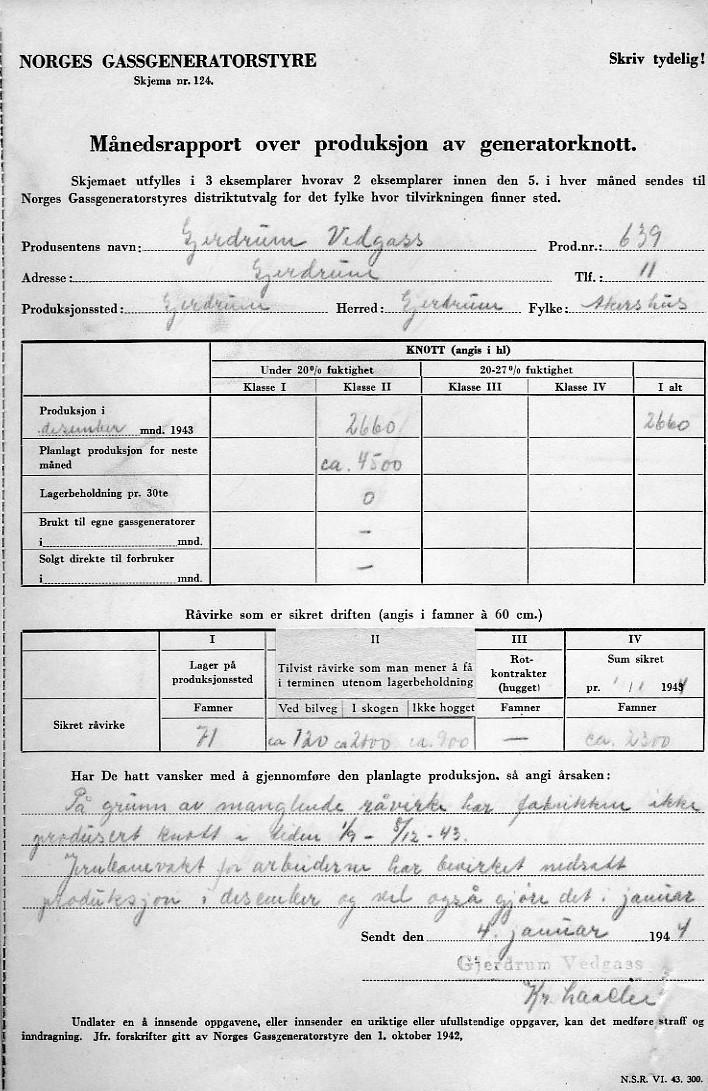 NORGES GASSGENERATORSTYRE Skriv tydelig!
Skjema nr. 124.
Månedsrapport over produksjon av generatorknott.
Skjemaet utfylles i 3 eksemplarer hvorav 2 eksemplarer innen den 5. i hver måned sendes til
Norges Gassgeneratorstyres distriktutvalg for det fylke hvor tilvirkningen finner sted.
Produsentens navn: Gjerdrum Vedgass Prod.nr.: 639
Adresse: Gjerdrum Tlf.: 11
Produksjonssted: Gjerdrum Herred: Gjerdrum Fylke: Akershus
KNOTT (angis i hl)
Under 20% fuktighet 20-27% fuktighet
Klasse I Klasse II Klasse III Klasse IV I alt
Produksjon i
desember mnd. 1943 2660 2660
Planlagt produksjon for neste
måned ca. 4500
Lagerbeholdning pr. 30te 0
Brukt til egne gassgeneratorer
i mnd. –
Solgt direkte til forbruker
i mnd. –
Råvirke som er sikret driften (angis i famner à 60 cm.)
I II III IV
Lager på
produksjonssted
Tilvist råvirke som man mener å få
i terminen utenom lagerbeholdning
Rot-
kontrakter
(hugget)
Sum sikret
pr. 1/1 1944
Famner Ved bilveg I skogen Ikke hogget Famner Famner
Sikret råvirke 71 ca 120 ca ca. 900 — ca. 2300
Har De hatt vansker med å gjennomføre den planlagte produksjon. så angi årsaken:
På grunn av manglende råvirke har fabrikken ikke
produsert knott i tiden 1/9 - 8/12 - 43.
for arbeiderne har bevirket nedsatt
produksjon i desember og vil også gjøre det i januar
Sendt den 4. januar 1944
Gjerdrum Vedgass
Kr.
Undlater en å innsende oppgavene, eller innsender en uriktige eller ufullstendige oppgaver, kan det medføre straff og
inndragning. Jfr. forskrifter gitt av Norges Gassgeneratorstyre den 1. oktober 1942,
N.S.R. VI. 43. 300.